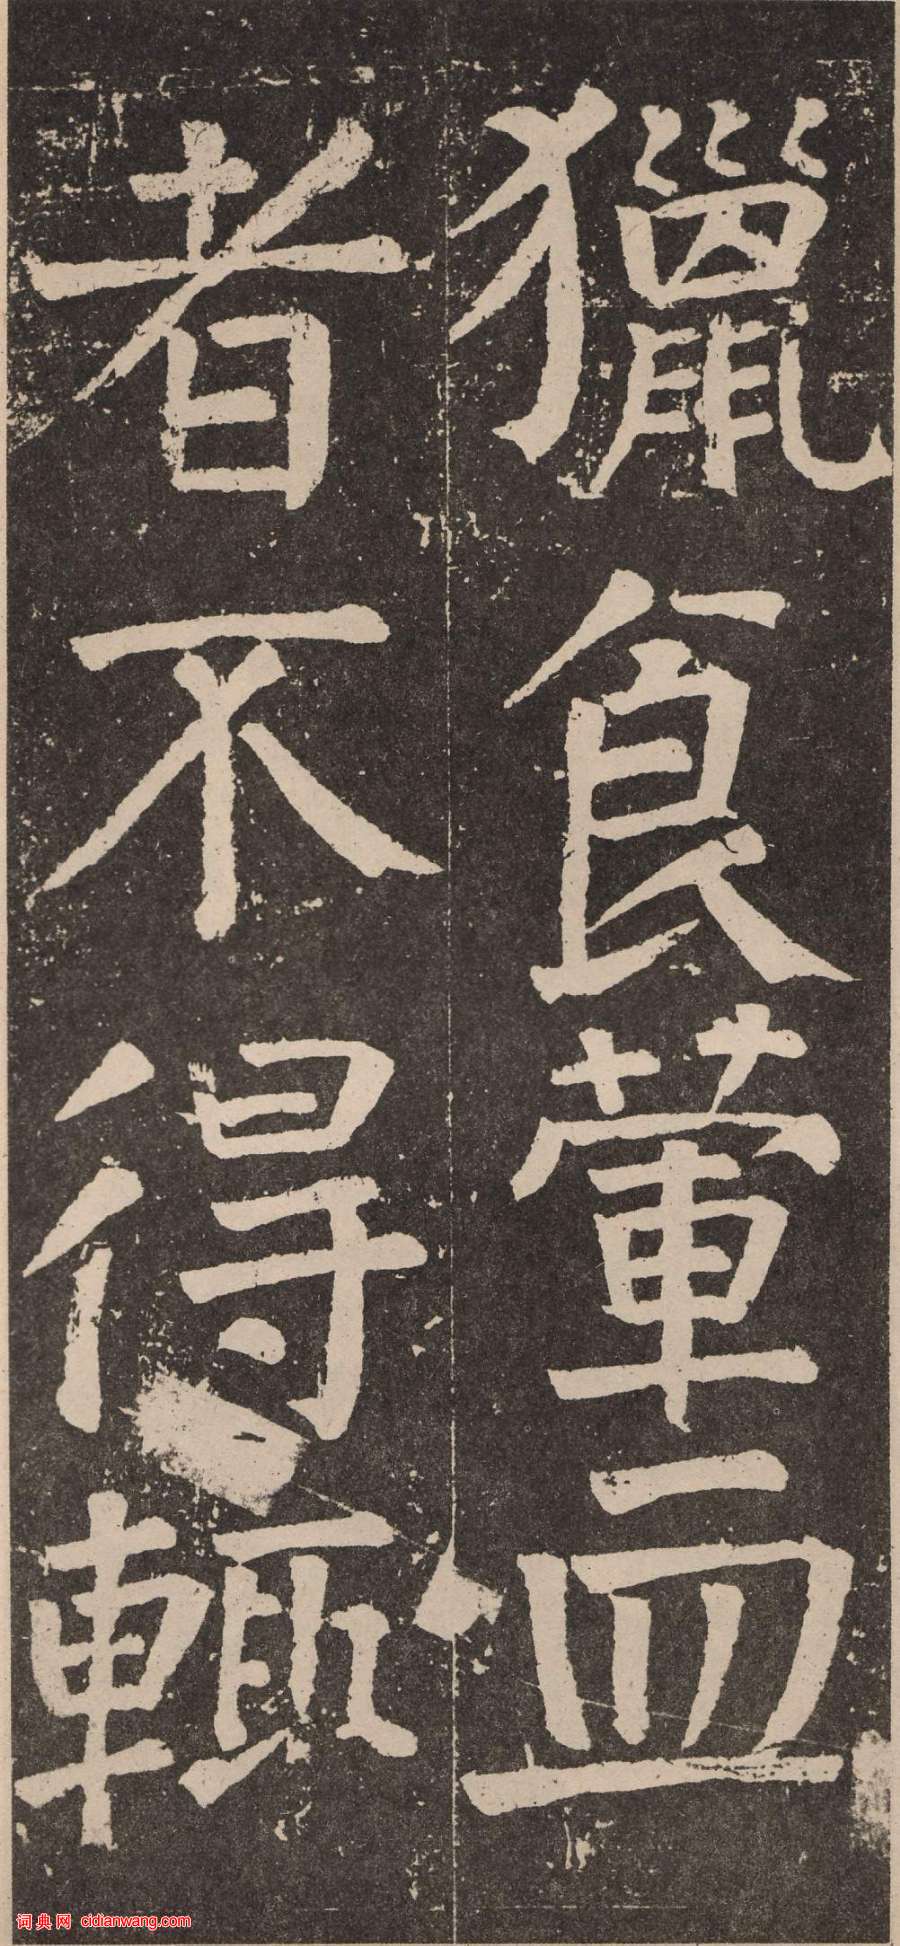 獵食葷血
者不得輙
词典网 cidianwang.com